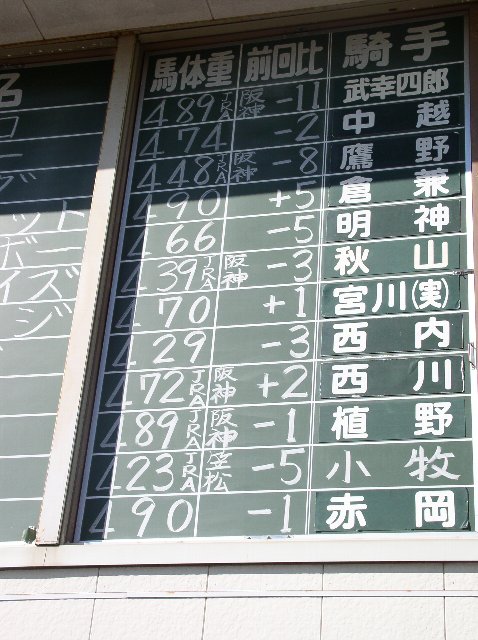 名 馬体重 前回比 騎手
489 JRA 阪神 -11 武幸四郎
474 -2 中越
448 JRA 阪神 -8 鷹野
ット 490 +5 倉兼
ボー 466 -5 明神
イズ 439 JRA 阪神 -3 秋山
ジ 470 +1 宮川(実)
429 -3 西内
472 JRA 阪神 +2 西川
489 JRA 阪神 -1 植野
423 JRA 笠松 -5 小牧
490 -1 赤岡